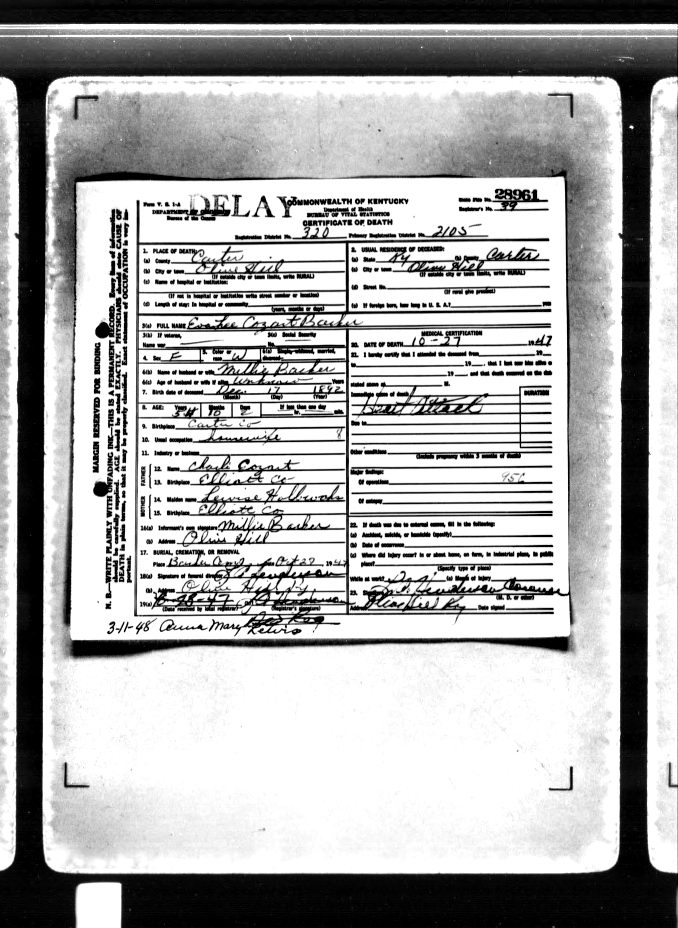 Form V. S. 1-A
DELAY
COMMONWEALTH OF KENTUCKY
State File No. 28961
DEPARTMENT
Department of Health
Registrar's No. 39
Bureau of the Census
BUREAU OF VITAL STATISTICS
CERTIFICATE OF DEATH
Registration District No. 320 Primary Registration District No. 2105
1. PLACE OF DEATH:
(a) County Carter
(b) City or town Olive Hill
(If outside city or town limits, write RURAL)
(c) Name of hospital or institution:
(If not in hospital or institution write street number or location)
(d) Length of stay: In hospital or community
(years, months or days)
2. USUAL RESIDENCE OF DECEASED:
(a) State Ky (b) County Carter
(c) City or town Olive Hill
(If outside city or town limits, write RURAL)
(d) Street No.
(If rural give precinct)
(e) If foreign born, how long in U. S. A.?
3(a) FULL NAME Cozart Barker
3(b) If veteran, 3(c) Social Security
Name war No.
4. Sex F 5. Color or race W 6(a) Single, widowed, married, divorced
6(b) Name of husband or wife Millie Barker
6(c) Age of husband or wife if alive Unknown Years
7. Birth date of deceased Dec. 17 1892
(Month) (Day) (Year)
8. AGE: Years 54 Months 10 Days If less than one day
hr. min.
9. Birthplace Carter Co
10. Usual occupation housewife
11. Industry or business
FATHER
12. Name Charlie Cozart
13. Birthplace Elliott Co
MOTHER
14. Maiden name
15. Birthplace Elliott Co
16(a) Informant's own signature Millie Barker
(b) Address Olive Hill
17. BURIAL, CREMATION, OR REMOVAL
Place Barker Cem Oct 27 1947
18(a) Signature of funeral director Henderson
(b) Address Olive Hill Ky
19(a)
(Date received by local registrar) (Registrar's signature)
MEDICAL CERTIFICATION
20. DATE OF DEATH 10-27 1947
21. I hereby certify that I attended the deceased from 19
to 19 , that I last saw him alive on
19 and that death occurred on the date
stated above at M.
Immediate cause of death DURATION
Heart Attack
Due to
Other conditions
(Include pregnancy within 3 months of death)
Major findings:
Of operations
Of autopsy
22. If death was due to external causes, fill in the following:
(a) Accident, suicide, or homicide (specify)
(b) Date of occurrence
(c) Where did injury occur? In or about home, on farm, in industrial place, in public
place?
(Specify type of place)
While at work? (e) Means of injury
23. Henderson Coroner
(M. D. or other)
Address Olive Hill Ky Date signed
MARGIN RESERVED FOR BINDING
N. B.—WRITE PLAINLY WITH UNFADING INK—THIS IS A PERMANENT RECORD. Every item of information
should be carefully supplied. AGE should be stated EXACTLY. PHYSICIANS should state CAUSE OF
DEATH in plain terms, so that it may be properly classified. Exact statement of OCCUPATION is very im-
portant.
3-11-48 Anna Mary
Lewis